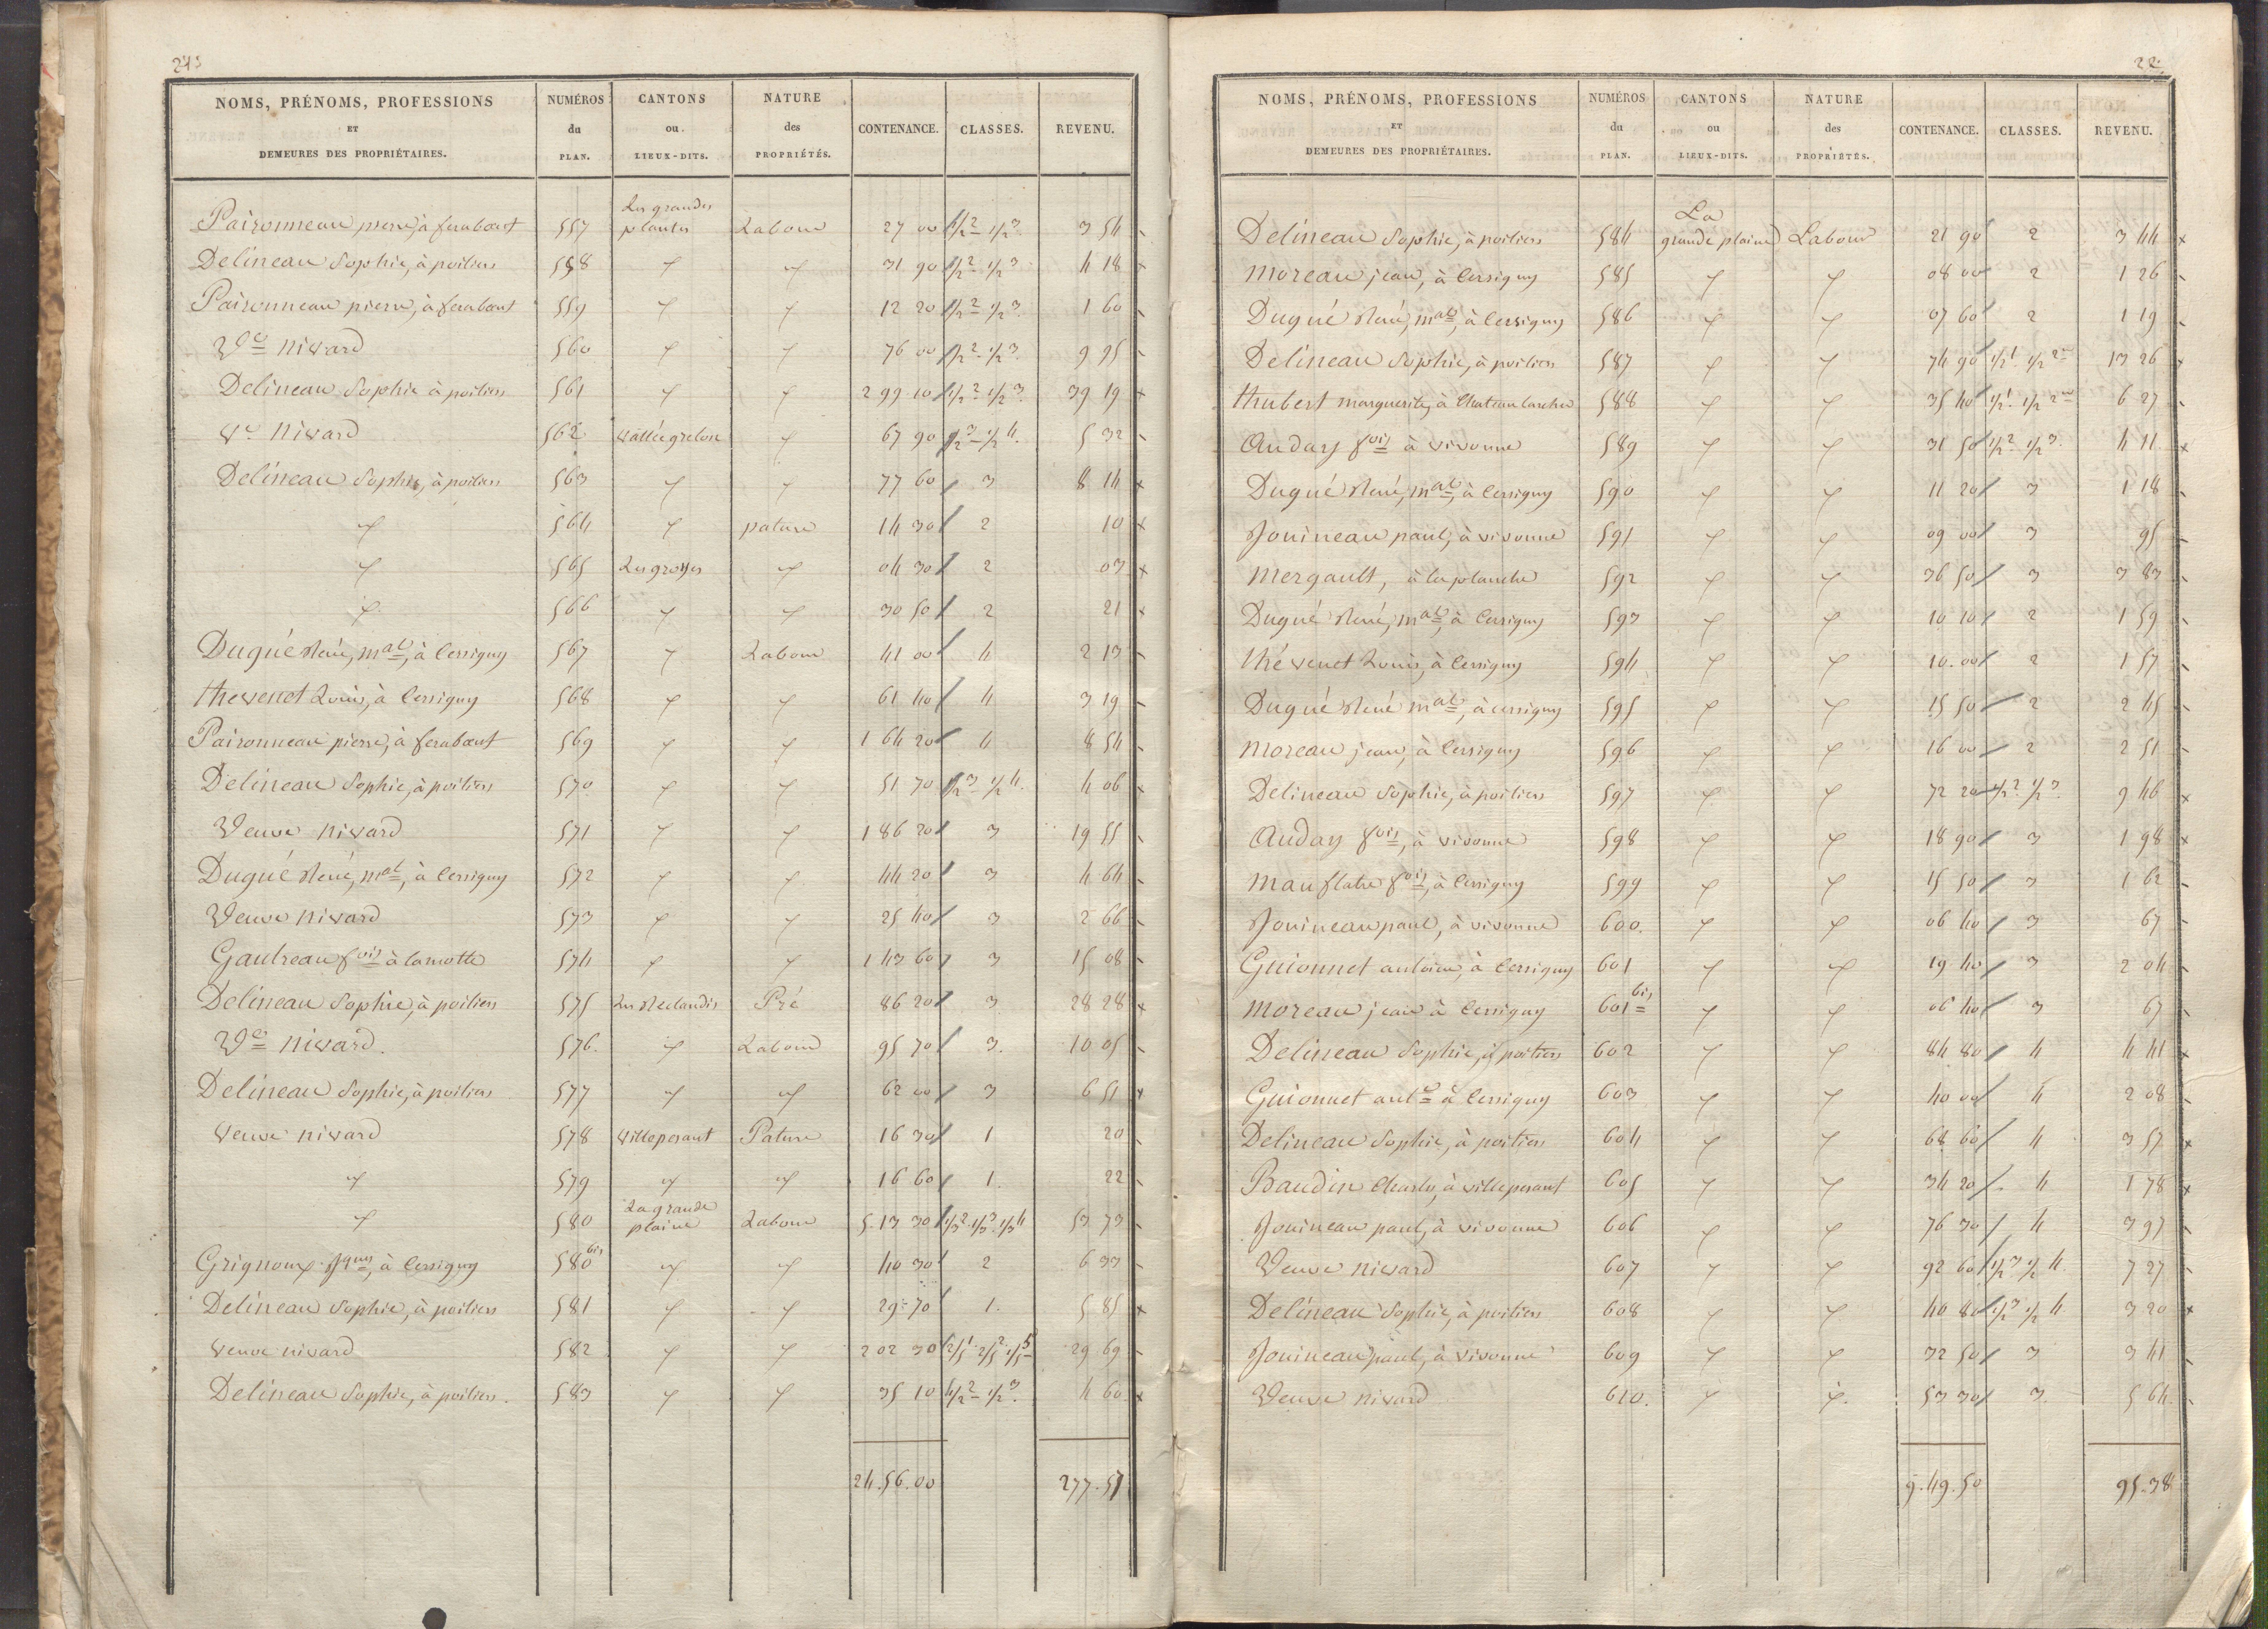 NOMS, PRÉNOMS, PROFESSIONS ET DEMEURES DES PROPRIÉTAIRES. NUMÉROS du PLAN. CANTONS ou LIEUX-DITS. NATURE des PROPRIÉTÉS. CONTENANCE. CLASSES. REVENU.
Les grandes
Paizonneau pierre, à ferabœuf 557 plantes Labour 27 00 1/2 2 1/2 3 3 54
Delineau Sophie, à poitiers 558 " " 31 90 1/2 2 1/2 3 4 18
Paizonneau pierre, à ferabœuf 559 " " 12 20 1/2 2 1/2 3 1 60
Ve nivard 560 " " 76 00 1/2 2 1/2 3 9 95
Delineau Sophie à poitiers 561 " " 2 99 10 1/2 2 1/2 3 39 19
Ve nivard 562 vallée grelou " 67 90 1/2 3 1/2 4 5 32
Delineau Sophie, à poitiers 563 " " 77 60 3 8 14
" 564 " pature 14 30 2 10
" 565 Les groges " 04 30 2 03
" 566 " " 30 50 2 21
Dugué René, mal, à Cersigny 567 " Labour 41 00 4 2 13
thevenet Louis, à Cersigny 568 " " 61 40 4 3 19
Paizonneau pierre, à ferabœuf 569 " " 1 64 20 4 8 54
Delineau Sophie, à poitiers 570 " " 51 70 1/2 3 1/2 4 4 06
Veuve nivard 571 " " 1 86 20 3 19 55
Dugué René, mal, à Cersigny 572 " " 44 20 3 4 64
Veuve nivard 573 " " 25 40 3 2 66
Gautreau fois à lamotte 574 " " 1 43 60 3 15 08
Delineau Sophie, à poitiers 575 Les Reclandis Pré 86 20 3 28 28
Ve nivard. 576. " Labour 95 70 3. 10 05
Delineau Sophie, à poitiers 577 " " 62 00 3 6 51
veuve nivard 578 villeposant Pature 16 30 1 20
" 579 " " 16 60 1. 22
La grande
" 580 plaine Labour 5. 13 30 1/3 2 1/3 3 1/3 4 53 73
Grignoux Jques, à Cersigny 580 bis " " 40 30 2 6 33
Delineau Sophie, à poitiers 581 " " 29 70 1. 5 85
veuve nivard 582 " " 2 02 30 2/5 1 2/5 2 1/5 5 29 69
Delineau Sophie, à poitiers. 583 " " 35 10 1/2 2 1/2 3 4 60
24.56.00 277.51
22.
NOMS, PRÉNOMS, PROFESSIONS ET DEMEURES DES PROPRIÉTAIRES. NUMÉROS du PLAN. CANTONS ou LIEUX-DITS. NATURE des PROPRIÉTÉS. CONTENANCE. CLASSES. REVENU.
La
Delineau Sophie, à poitiers 584 grande plaine Labour 21 90 2 3 44
moreau jean, à Cersigny 585 " " 08 00 2 1 26
Dugué René, mal, à Cersigny 586 " " 07 60 2 1 19
Delineau Sophie, à poitiers 587 " " 74 90 1/2 1 1/2 2 13 26
thubert marguerite, à Chateau larcher 588 " " 35 40 1/2 1 1/2 2 6 27
auday fois à vivonne 589 " " 31 50 1/2 2 1/2 3 4 11
Dugué René, mal, à Cersigny 590 " " 11 20 3 1 18
Jouineau paul, à vivonne 591 " " 09 00 3 95
mergault, à la planche 592 " " 36 50 3 3 83
Dugué René, mal, à Cersigny 593 " " 10 10 2 1 59
thévenet Louis, à Cersigny 594 " " 10.00 2 1 57
Dugué René mal, à cersigny 595 " " 15 50 2 2 45
moreau jean, à Cersigny 596 " " 16 00 2 2 51
Delineau Sophie, à poitiers 597 " " 72 20 1/2 2 1/2 3 9 46
auday fois, à vivonne 598 " " 18 90 3 1 98
mauflatre fois, à Cersigny 599 " " 15 50 3 1 62
Jouineau paul, à vivonne 600. " " 06 40 3 67
Guionnet antoine, à Cersigny 601 " " 19 40 3 2 04
moreau jean à Cersigny 601 bis " " 06 40 3 67
Delineau Sophie, à poitiers 602 " " 84 80 4 4 41
Guionnet ante à Cersigny 603 " " 40 00 4 2 08
Delineau Sophie, à poitiers 604 " " 68 60 4 3 57
Baudin Charles, à villeposant 605 " " 34 20 4 1 78
Jouineau paul, à vivonne 606 " " 76 30 4 3 97
Veuve nivard 607 " " 92 60 1/2 3 1/2 4 7 27
Delineau Sophie, à poitiers 608 " " 40 80 1/2 3 1/2 4 3 20
Jouineau paul, à vivonne 609 " " 32 50 3 3 41
Veuve nivard 610. " " 53 30 3 5 64
9.49.50 95.38